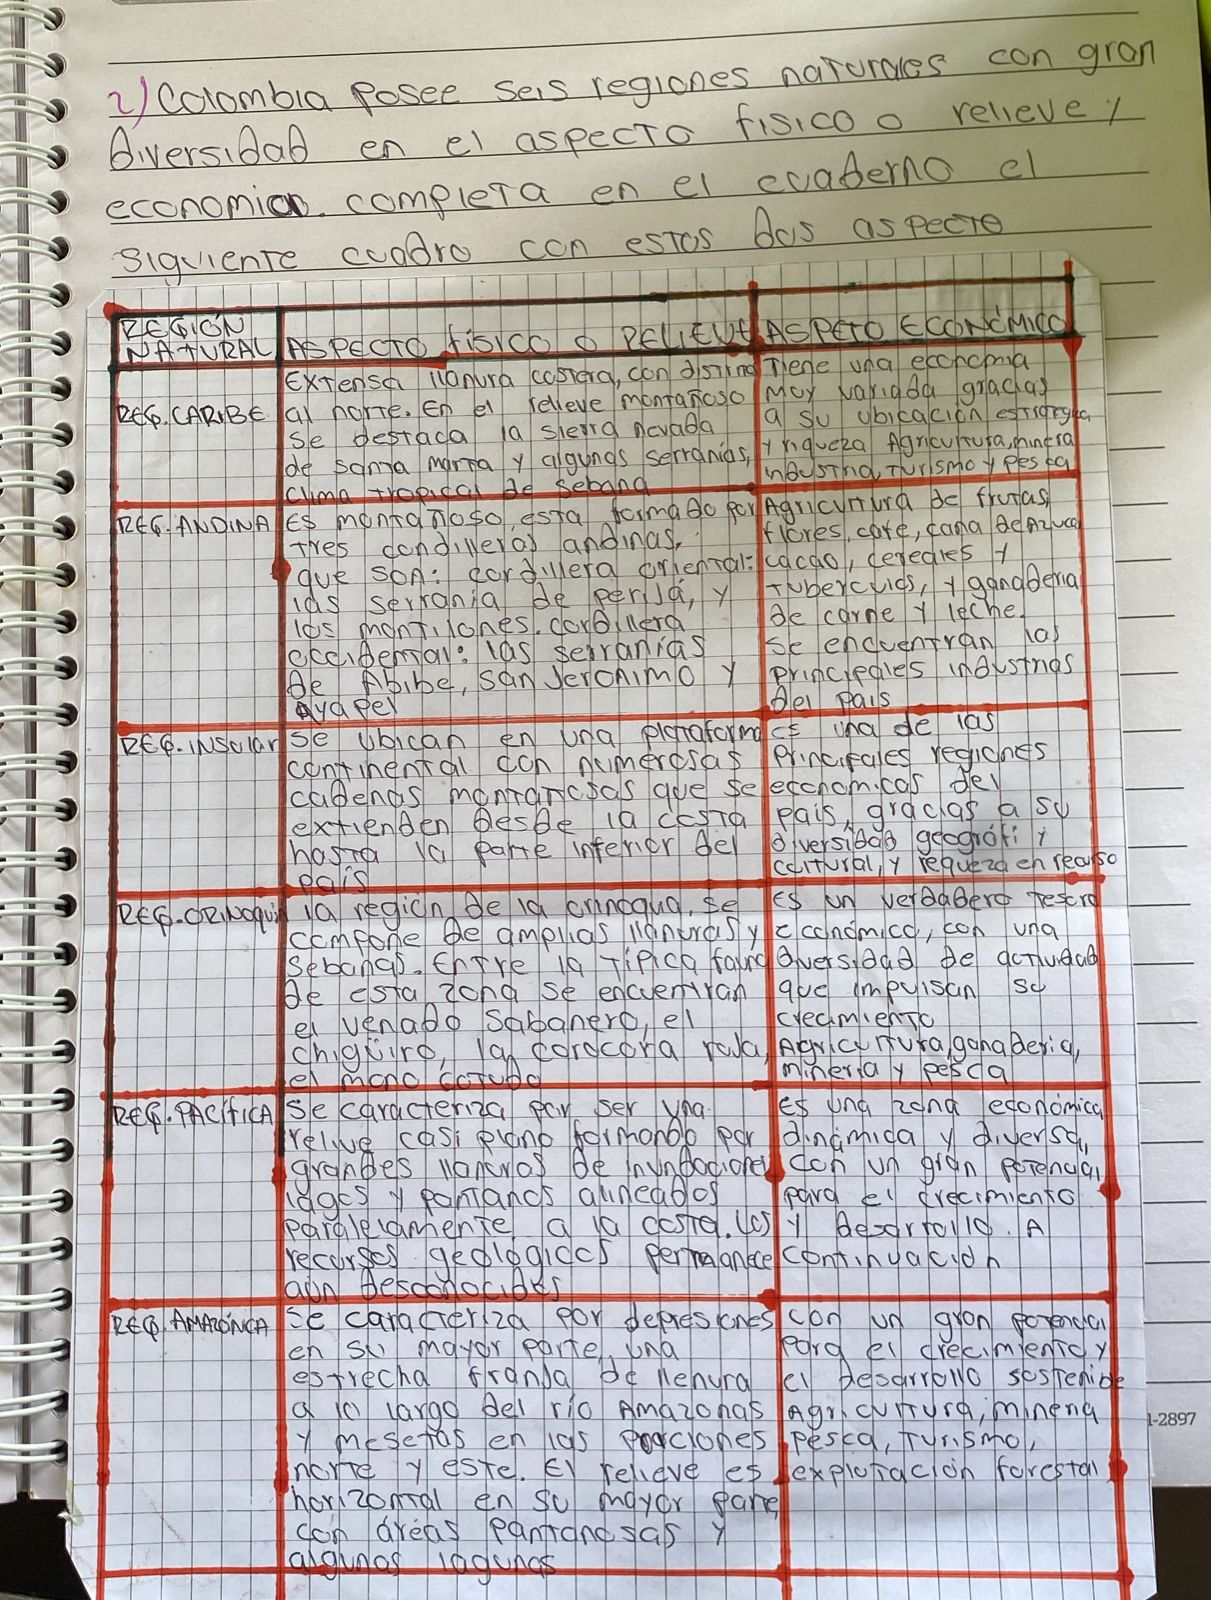 2) Colombia posee seis regiones naturales con gran
diversidad en el aspecto fisico o relieve y
economico. completa en el cuaderno el
siguiente cuadro con estos dos aspecto
REGIÓN NATURAL
ASPECTO físico o RELIEVE
ASPETO ECONÓMICO
REG. CARIBE
Extensa llanura costera, con disting
al norte. En el relieve montañoso
se destaca la sierra nevada
de santa marta y algunas serranías,
clima tropical de sebana
Tiene una economia
muy variada gracias
a su ubicación estrategica
y riqueza Agricultura, minera
industria, turismo y pesca
REG. ANDINA
Es montañoso, esta formado por
tres condilleras andinas,
que son: cordillera oriental:
las serranía de perijá, y
los montilones. cordillera
occidental: las serranías
de Abibe, San Jeronimo y
Ayapel
Agricultura de frutas,
flores, cafe, caña de Azuca
cacao, cereales y
tuberculos, y ganaderia
de carne y leche.
se encuentran las
principales industrias
del pais
REG. INSULAR
se ubican en una plataforma
continental con numerosas
cadenas montañosas que se
extienden desde la costa
hasta la parte inferior del
país
es una de las
principales regiones
economicas del
país, gracias a su
diversidad geográfi y
cultural, y requeza en recurso
REG. ORINOQUIA
la región de la orinoqua, se
compone de amplias llanuras y
sebanas. Entre la típica fauna
de esta zona se encuentran
el venado sabanero, el
chigüiro, la corocora roja,
el mono cotudo
Es un verdadero tesoro
económico, con una
diversidad de actividad
que impulsan su
crecimiento
Agricultura, ganaderia,
mineria y pesca
REG. PACÍFICA
se caracteriza por ser una
relive casi plano formando por
grandes llanuras de inundaciones
lagos y pantanos alineados
paralelamente a la costa. los
recursos geológicos permanece
aún desconocidos
Es una zona económica
dinámica y diversa,
con un gran potencial
para el crecimiento
y desarrollo. A
continuación
REG. AMAZÓNICA
se caracteriza por depresiones
en su mayor parte, una
estrecha franja de llenura
a lo largo del río Amazonas
y mesetas en las porciones
norte y este. El relieve es
horizontal en su mayor parte,
con áreas pantanosas y
algunas lagunas
con un gran potencial
para el crecimiento y
el desarrollo sostenible
Agricultura, minera
pesca, turismo,
explotación forestal
1-2897